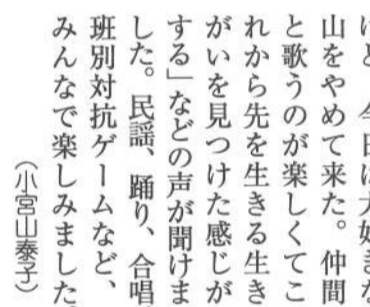 けど、今日は大好きな
山をやめて来た。仲間
と歌うのが楽しくてこ
れから先を生きる生き
がいを見つけた感じが
する」などの声が聞けま
した。民謡、踊り、合唱
班別対抗ゲームなど、
みんなで楽しみました。
（小宮山泰子）